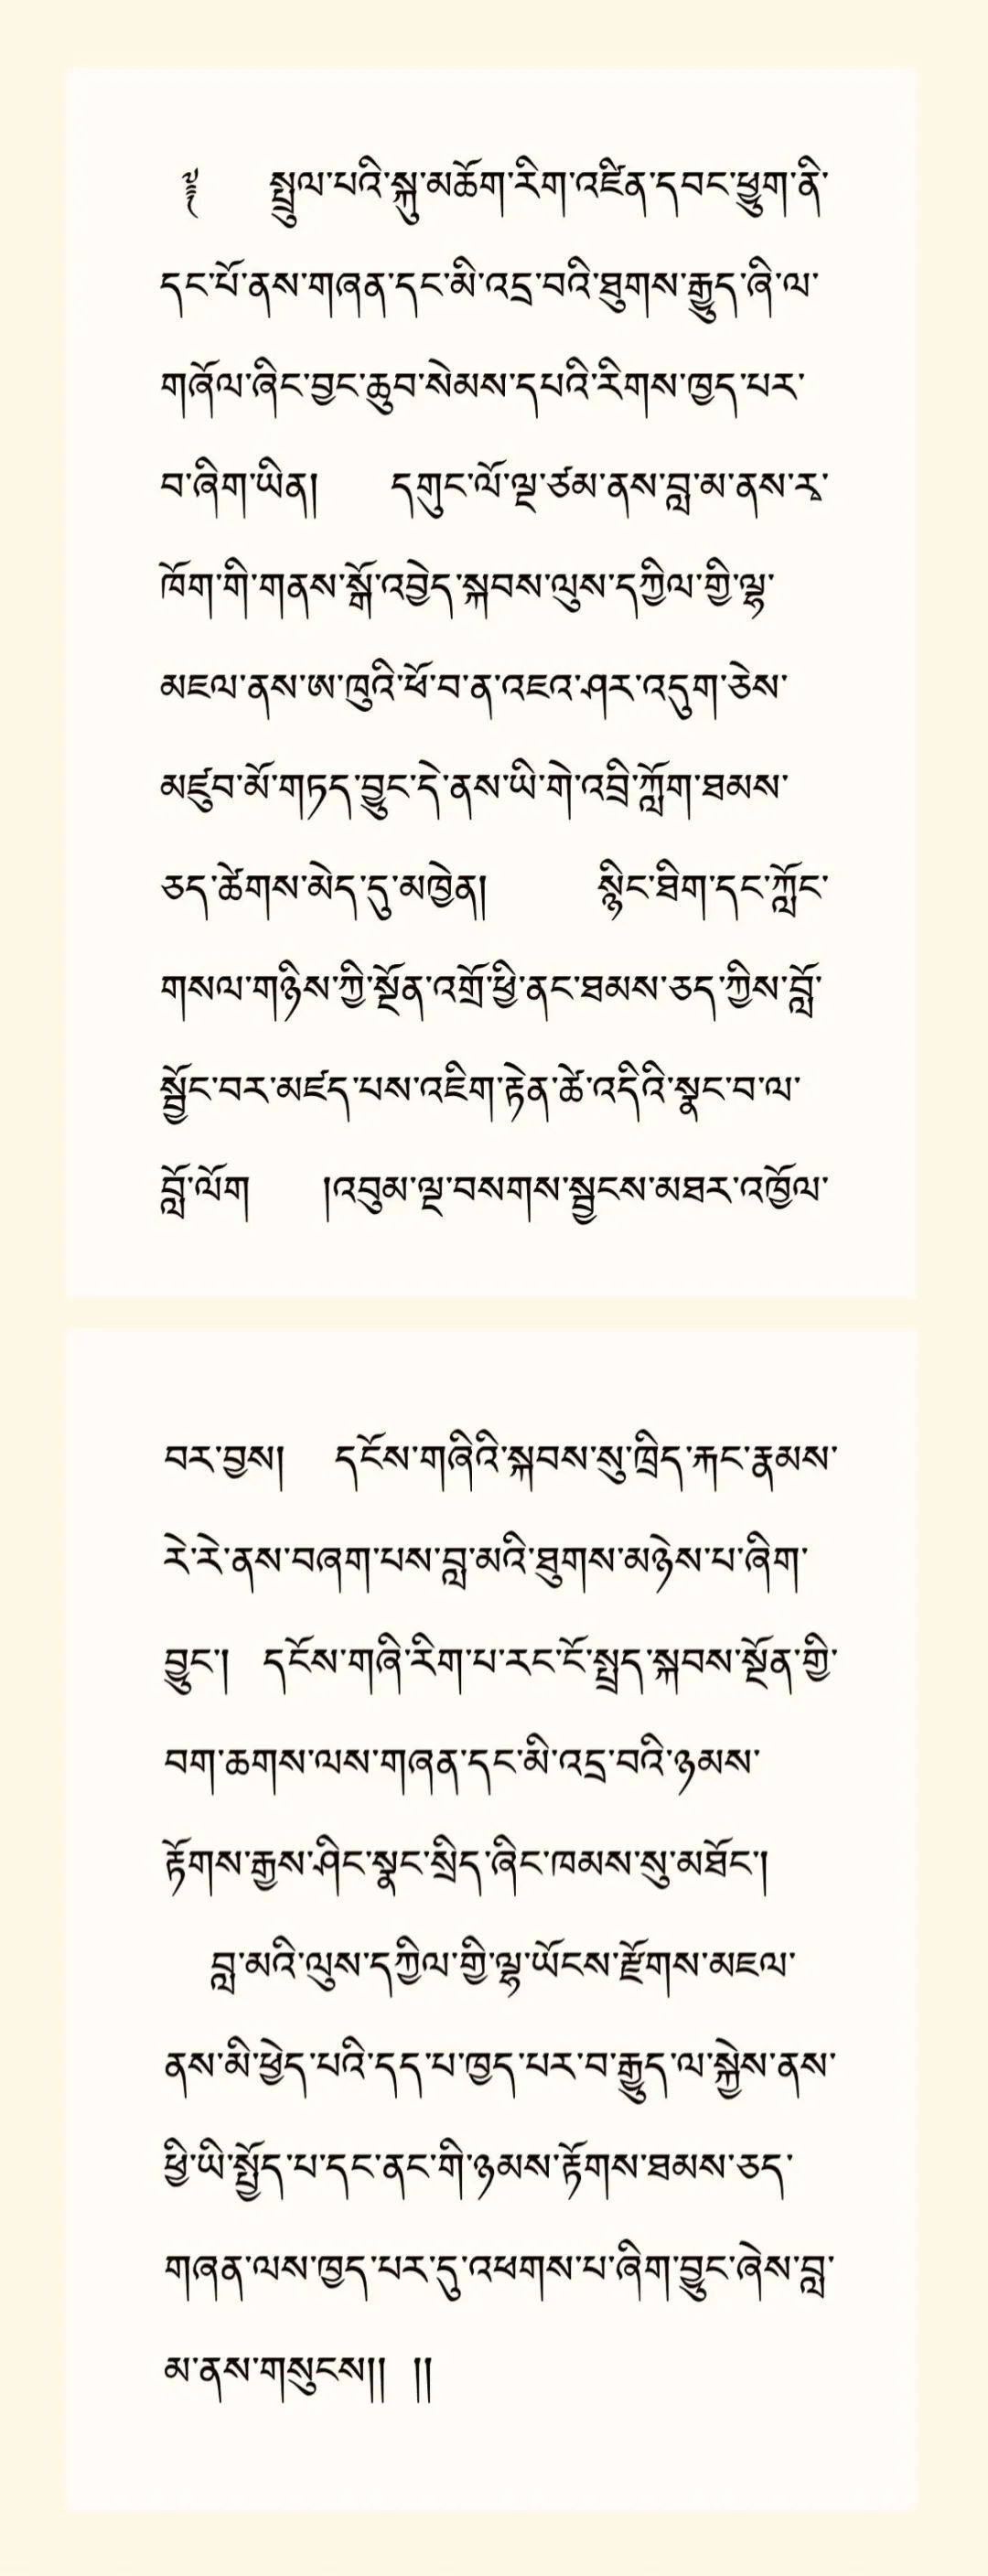 ༈ སྤྲུལ་པའི་སྐུ་མཆོག་རིག་འཛིན་དབང་ཕྱུག་ནི་
དང་པོ་ནས་གཞན་དང་མི་འདྲ་བའི་ཐུགས་རྒྱུད་ཞི་ལ་
གཞོལ་ཞིང་བྱང་ཆུབ་སེམས་དཔའི་རིགས་ཁྱད་པར་
བ་ཞིག་ཡིན། དགུང་ལོ་ལྔ་ཙམ་ནས་བླ་མ་ནས་རྭ་
ཁོག་གི་གནས་སྒོ་འབྱེད་སྐབས་ལུས་དཀྱིལ་གྱི་ལྷ་
མཇལ་ནས་ཨ་ཁུའི་ཕོ་བ་ན་འཇའ་ཤར་འདུག་ཅེས་
མཛུབ་མོ་གཏད་བྱུང་དེ་ནས་ཡི་གེ་འབྲི་ཀློག་ཐམས་
ཅད་ཚེགས་མེད་དུ་མཁྱེན། སྙིང་ཐིག་དང་ཀློང་
གསལ་གཉིས་ཀྱི་སྔོན་འགྲོ་ཕྱི་ནང་ཐམས་ཅད་ཀྱིས་བློ་
སྦྱོང་བར་མཛད་པས་འཇིག་རྟེན་ཚེ་འདིའི་སྣང་བ་ལ་
བློ་ལོག །འབུམ་ལྔ་བསགས་སྦྱངས་མཐར་འཁྱོལ་
བར་བྱས། དངོས་གཞིའི་སྐབས་སུ་ཁྲིད་རྐང་རྣམས་
རེ་རེ་ནས་བཞག་པས་བླ་མའི་ཐུགས་མཉེས་པ་ཞིག་
བྱུང་། དངོས་གཞི་རིག་པ་རང་ངོ་སྤྲད་སྐབས་སྔོན་གྱི་
བག་ཆགས་ལས་གཞན་དང་མི་འདྲ་བའི་ཉམས་
རྟོགས་རྒྱས་ཤིང་སྣང་སྲིད་ཞིང་ཁམས་སུ་མཐོང་།
བླ་མའི་ལུས་དཀྱིལ་གྱི་ལྷ་ཡོངས་རྫོགས་མཇལ་
ནས་མི་ཕྱེད་པའི་དད་པ་ཁྱད་པར་བ་རྒྱུད་ལ་སྐྱེས་ནས་
ཕྱི་ཡི་སྤྱོད་པ་དང་ནང་གི་ཉམས་རྟོགས་ཐམས་ཅད་
གཞན་ལས་ཁྱད་པར་དུ་འཕགས་པ་ཞིག་བྱུང་ཞེས་བླ་
མ་ནས་གསུངས།། །།